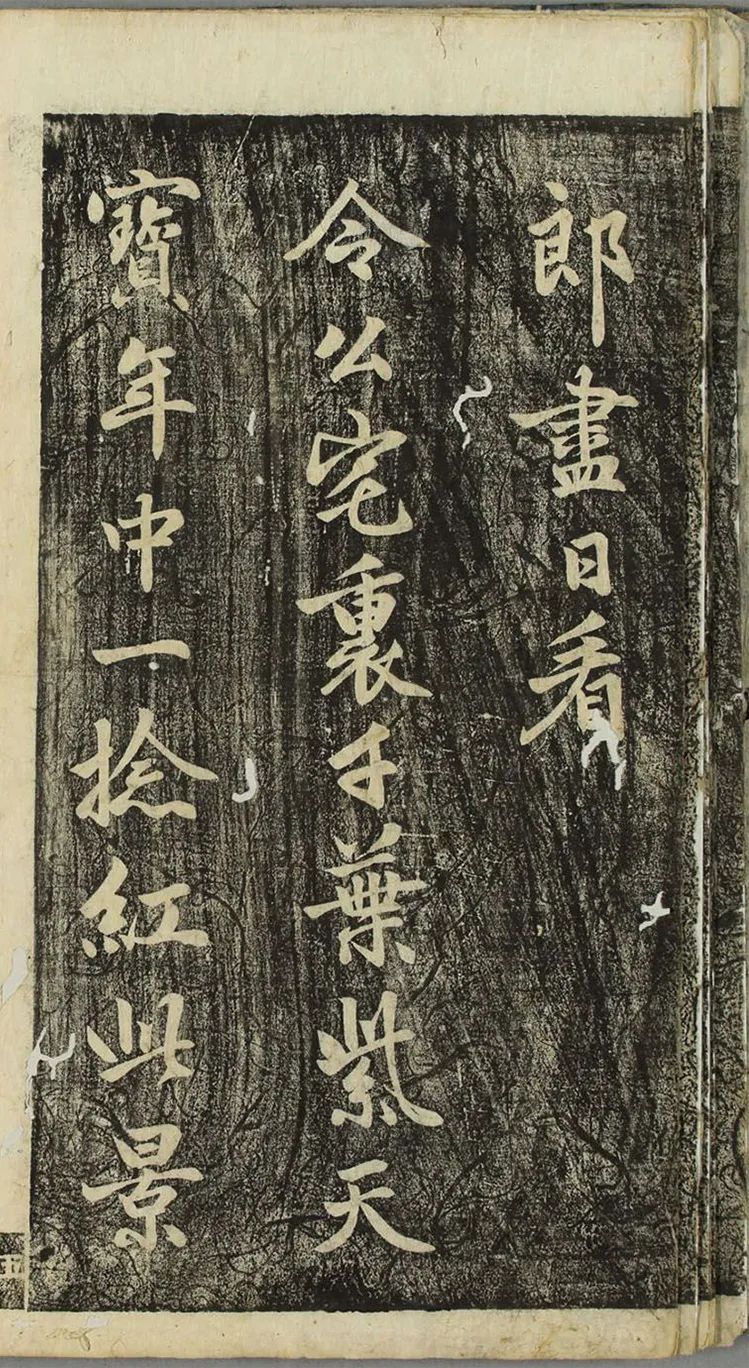 郎盡日看
令公宅裏千葉紫天
寶年中一捻紅此景